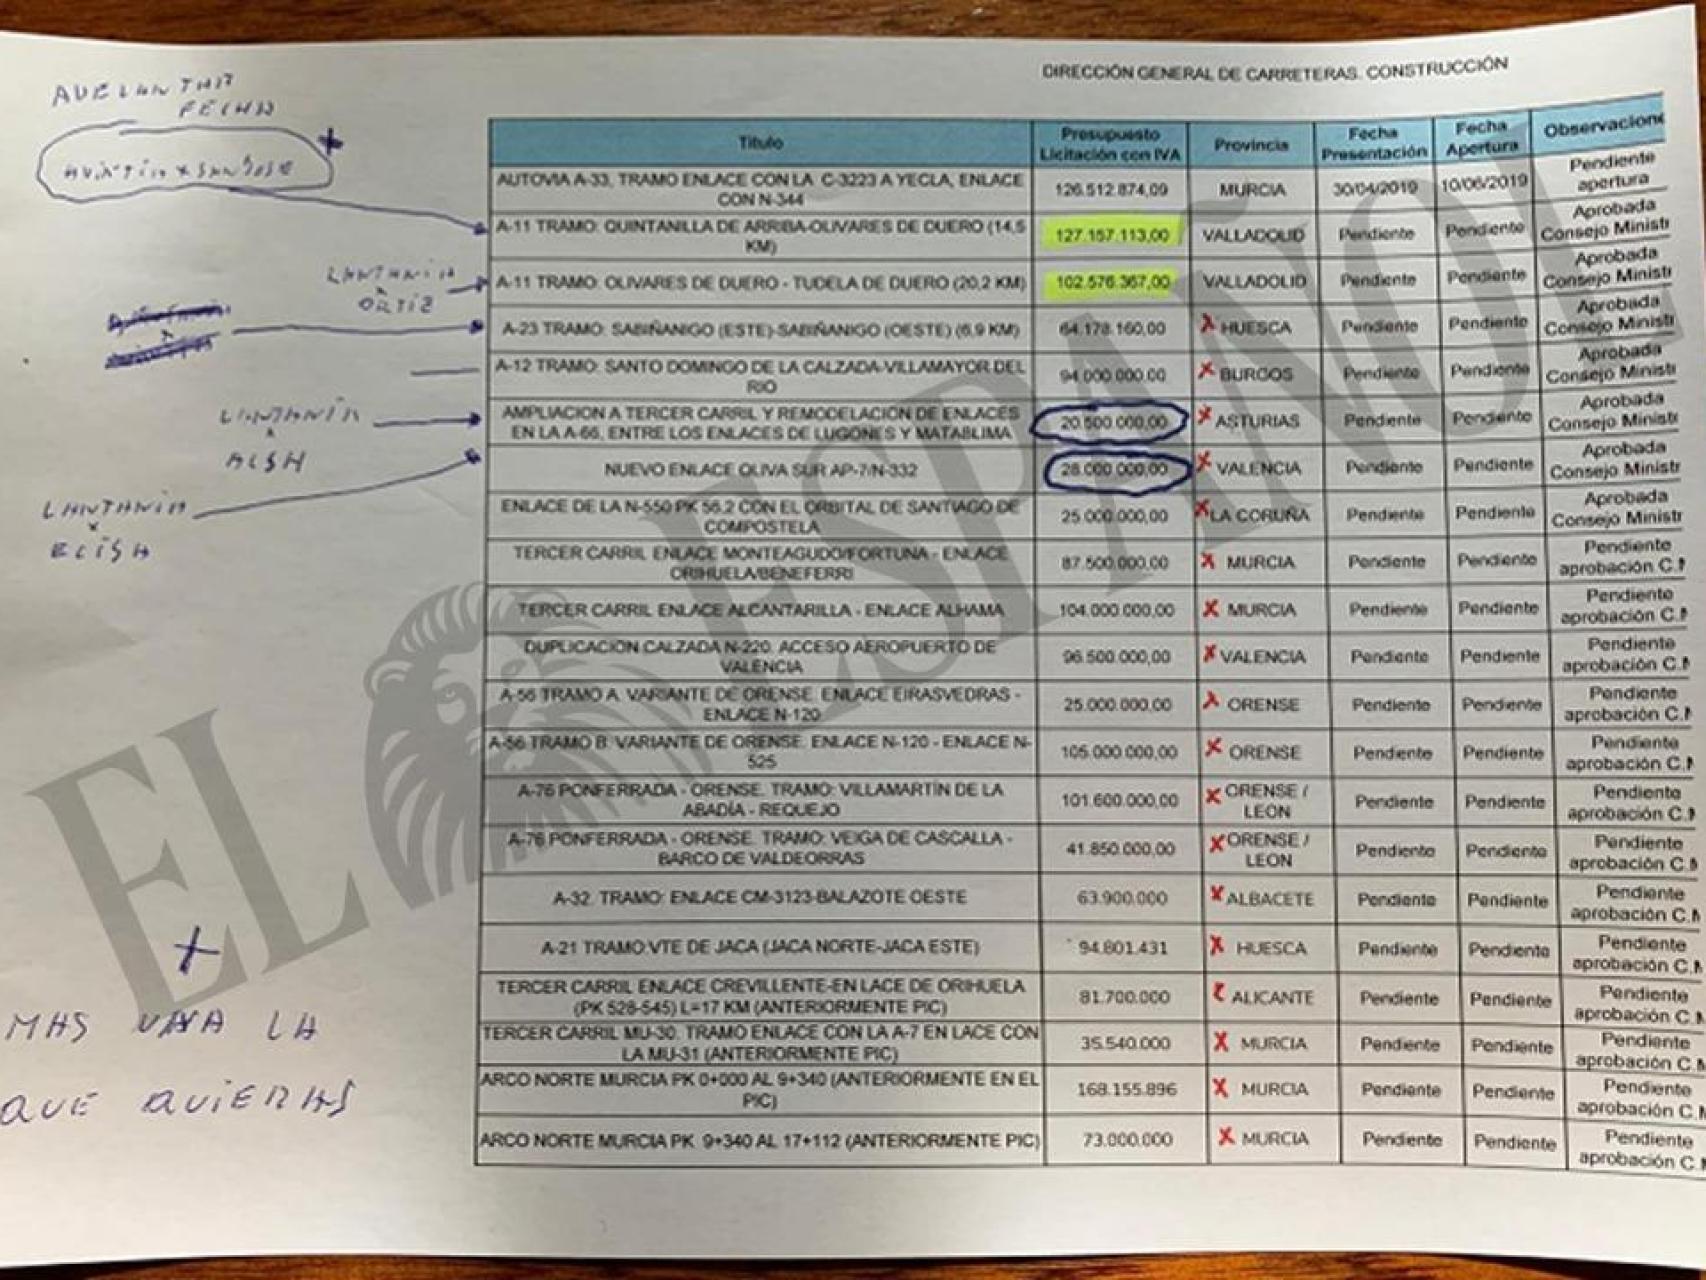 DIRECCIÓN GENERAL DE CARRETERAS. CONSTRUCCIÓN
FECHA
+
Título Presupuesto Licitación con IVA Provincia Fecha Presentación Fecha Apertura Observacione
AUTOVIA A-33, TRAMO ENLACE CON LA C-3223 A YECLA, ENLACE CON N-344 126.512.874,09 MURCIA 30/04/2019 10/06/2019 Pendiente apertura
A-11 TRAMO: QUINTANILLA DE ARRIBA-OLIVARES DE DUERO (14,5 KM) 127.157.113,00 VALLADOLID Pendiente Pendiente Aprobada Consejo Ministr
LANTANIA
x
ORTIZ
A-11 TRAMO: OLIVARES DE DUERO - TUDELA DE DUERO (20,2 KM) 102.576.367,00 VALLADOLID Pendiente Pendiente Aprobada Consejo Ministr
A-23 TRAMO: SABIÑANIGO (ESTE)-SABIÑANIGO (OESTE) (6,9 KM) 64.178.160,00 X HUESCA Pendiente Pendiente Aprobada Consejo Ministr
A-12 TRAMO: SANTO DOMINGO DE LA CALZADA-VILLAMAYOR DEL RIO 94.000.000,00 X BURGOS Pendiente Pendiente Aprobada Consejo Ministr
LANTANIA
x
AMPLIACION A TERCER CARRIL Y REMODELACION DE ENLACES EN LA A-66, ENTRE LOS ENLACES DE LUGONES Y MATABLIMA 20.500.000,00 X ASTURIAS Pendiente Pendiente Aprobada Consejo Ministr
NUEVO ENLACE OLIVA SUR AP-7/N-332 28.000.000,00 X VALENCIA Pendiente Pendiente Aprobada Consejo Ministr
LANTANIA
x
ENLACE DE LA N-550 PK 56.2 CON EL ORBITAL DE SANTIAGO DE COMPOSTELA 25.000.000,00 X LA CORUÑA Pendiente Pendiente Aprobada Consejo Ministr
TERCER CARRIL ENLACE MONTEAGUDO/FORTUNA - ENLACE ORIHUELA/BENEFERRI 87.500.000,00 X MURCIA Pendiente Pendiente Pendiente aprobación C.M
TERCER CARRIL ENLACE ALCANTARILLA - ENLACE ALHAMA 104.000.000,00 X MURCIA Pendiente Pendiente Pendiente aprobación C.M
DUPLICACION CALZADA N-220. ACCESO AEROPUERTO DE VALENCIA 96.500.000,00 X VALENCIA Pendiente Pendiente Pendiente aprobación C.M
A-56 TRAMO A. VARIANTE DE ORENSE. ENLACE EIRASVEDRAS - ENLACE N-120 25.000.000,00 X ORENSE Pendiente Pendiente Pendiente aprobación C.M
A-56 TRAMO B. VARIANTE DE ORENSE. ENLACE N-120 - ENLACE N-525 105.000.000,00 X ORENSE Pendiente Pendiente Pendiente aprobación C.M
A-76 PONFERRADA - ORENSE. TRAMO: VILLAMARTÍN DE LA ABADÍA - REQUEJO 101.600.000,00 X ORENSE / LEON Pendiente Pendiente Pendiente aprobación C.M
A-76 PONFERRADA - ORENSE. TRAMO: VEIGA DE CASCALLA - BARCO DE VALDEORRAS 41.850.000,00 X ORENSE / LEON Pendiente Pendiente Pendiente aprobación C.M
A-32. TRAMO: ENLACE CM-3123-BALAZOTE OESTE 63.900.000 X ALBACETE Pendiente Pendiente Pendiente aprobación C.M
A-21 TRAMO:VTE DE JACA (JACA NORTE-JACA ESTE) 94.801.431 X HUESCA Pendiente Pendiente Pendiente aprobación C.M
TERCER CARRIL ENLACE CREVILLENTE-EN LACE DE ORIHUELA (PK 528-545) L=17 KM (ANTERIORMENTE PIC) 81.700.000 ALICANTE Pendiente Pendiente Pendiente aprobación C.M
TERCER CARRIL MU-30. TRAMO ENLACE CON LA A-7 EN LACE CON LA MU-31 (ANTERIORMENTE PIC) 35.540.000 X MURCIA Pendiente Pendiente Pendiente aprobación C.M
ARCO NORTE MURCIA PK 0+000 AL 9+340 (ANTERIORMENTE EN EL PIC) 168.155.896 X MURCIA Pendiente Pendiente Pendiente aprobación C.M
ARCO NORTE MURCIA PK 9+340 AL 17+112 (ANTERIORMENTE PIC) 73.000.000 X MURCIA Pendiente Pendiente Pendiente aprobación C.M
+
MAS UNA LA
QUE QUIERAS
EL ESPAÑOL